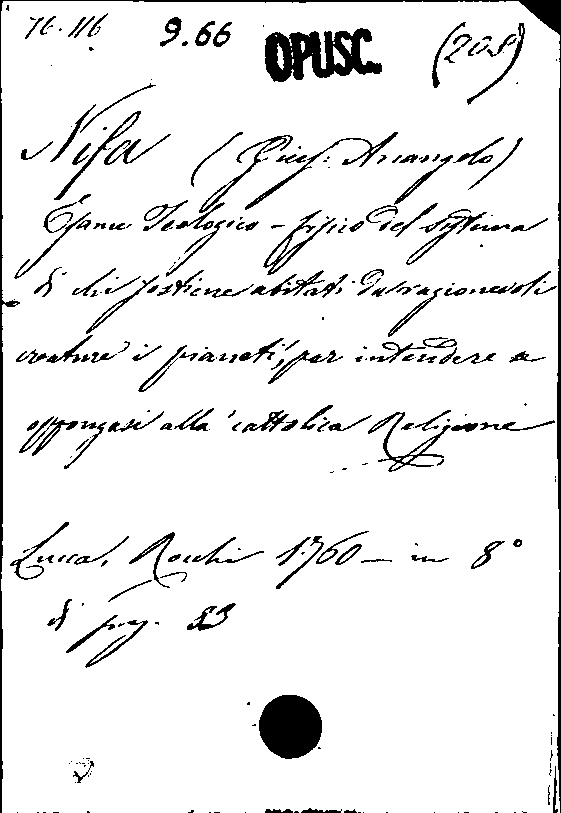 76.116 9.66 OPUSC. (20.8)
Nifa (Gius: Arcangelo)
Esame Teologico - fisico del systema
di chi sostiene abitati da ragionevoli
creature i pianeti, per intendere se
oppongasi alla cattolica Religione
Lucca, Rocchi 1760 — in 8°
di pag. 53